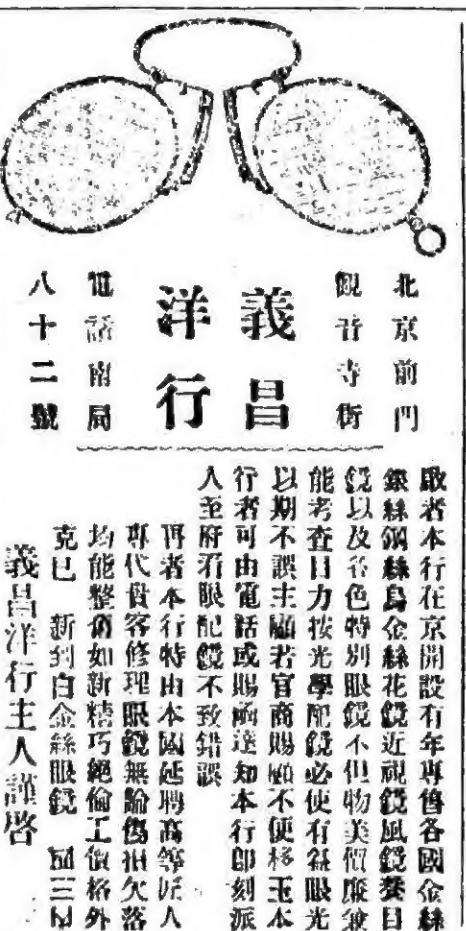 北京前門
觀音寺街
義昌
洋行
電話南局
八十二號
敬者本行在京開設有年專售各國金絲
銀絲鋼絲烏金絲花鏡近視鏡風鏡養目
鏡以及各色特別眼鏡不但物美價廉兼
能考查目力按光學配鏡必使有益眼光
以期不誤主顧若官商賜顧不便移玉本
行者可由電話或賜函達知本行即刻派
人至府看眼配鏡不致錯誤
再者本行特由本國延聘高等匠人
專代貴客修理眼鏡無論傷損欠落
均能整舊如新精巧絕倫工價格外
克已 新到白金絲眼鏡
義昌洋行主人謹啓